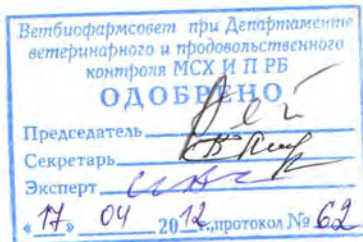 Ветбиофармсовет при Департаменте
ветеринарного и продовольственного
контроля МСХ И П РБ
ОДОБРЕНО
Председатель
Секретарь
Эксперт
« 17 » 04 2012 г., протокол № 62